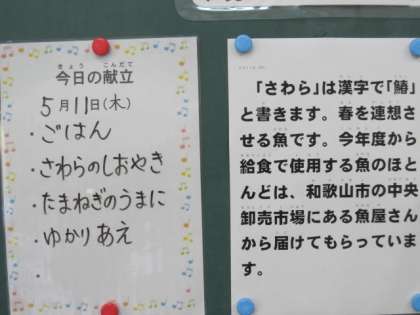 きょう こんだて
今日の献立
5月11日(木)
・ごはん
・さわらのしおやき
・たまねぎのうまに
・ゆかりあえ
・
「さわら」は漢字で「鰆」
と書きます。春を連想さ
せる魚です。今年度から
給食で使用する魚のほと
んどは、和歌山市の中央
卸売市場にある魚屋さん
から届けてもらっていま
す。